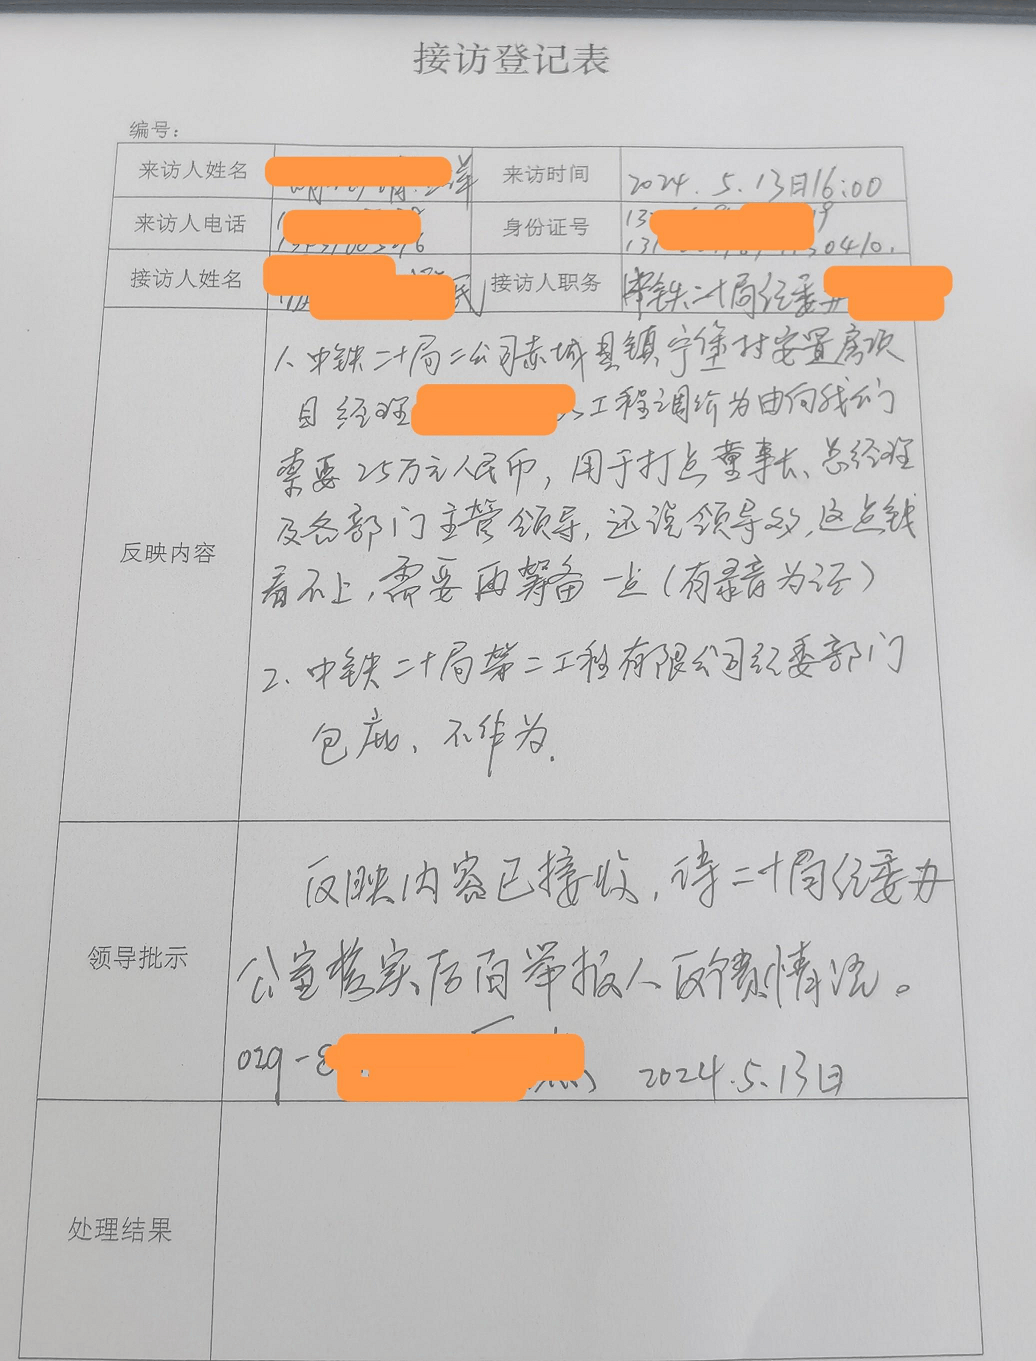 接访登记表
编号：
来访人姓名 来访时间 2024.5.13日16:00
来访人电话 身份证号 0410.
接访人姓名 民 接访人职务 中铁二十局纪委办
1、中铁二十局二公司赤城县镇宁堡村安置房项
目经理 以工程调价为由向我们
索要25万元人民币，用于打点董事长、总经理
及各部门主管领导，还说领导多，这点钱
看不上，需要再筹备一点（有录音为证）
反映内容
2、中铁二十局第二工程有限公司纪委部门
包庇、不作为.
反映内容已接收，待二十局纪委办
领导批示
公室核实后向举报人反馈情况。
029-8 2024.5.13日
处理结果